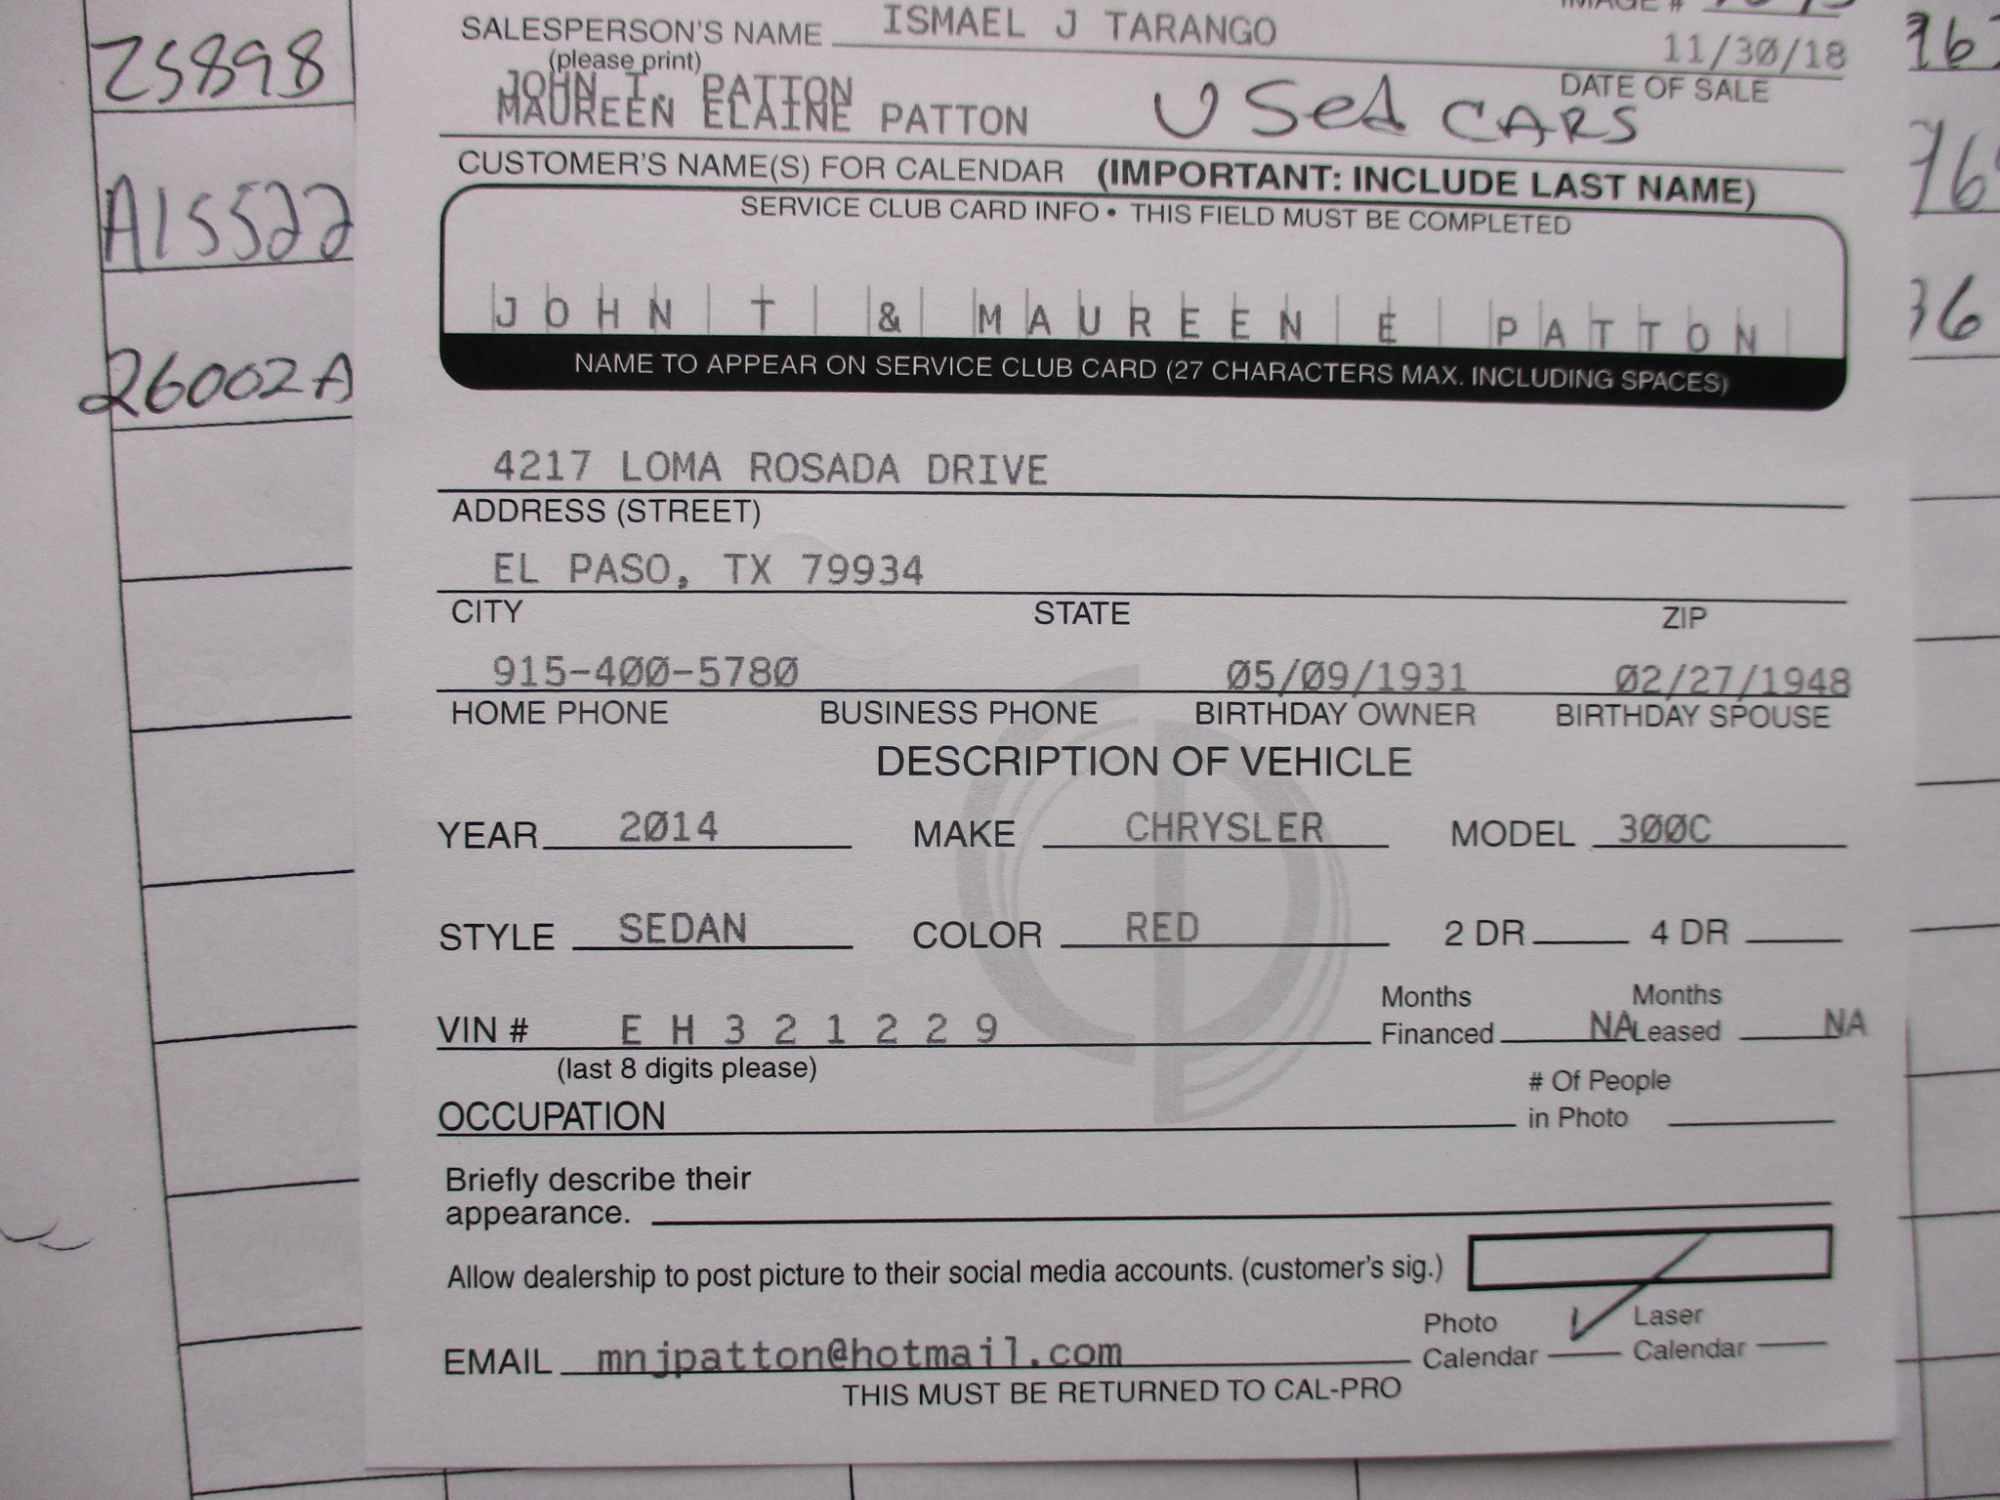 SALESPERSON'S NAME ISMAEL J TARANGO
(please print)
11/30/18
DATE OF SALE
JOHN T. PATTON
MAUREEN ELAINE PATTON
USed CARS
CUSTOMER'S NAME(S) FOR CALENDAR (IMPORTANT: INCLUDE LAST NAME)
SERVICE CLUB CARD INFO • THIS FIELD MUST BE COMPLETED
JOHN T & MAUREEN E PATTON
NAME TO APPEAR ON SERVICE CLUB CARD (27 CHARACTERS MAX. INCLUDING SPACES)
4217 LOMA ROSADA DRIVE
ADDRESS (STREET)
EL PASO, TX 79934
CITY STATE ZIP
915-400-5780 05/09/1931 02/27/1948
HOME PHONE BUSINESS PHONE BIRTHDAY OWNER BIRTHDAY SPOUSE
DESCRIPTION OF VEHICLE
YEAR 2014 MAKE CHRYSLER MODEL 300C
STYLE SEDAN COLOR RED 2 DR 4 DR
VIN # EH321229 Months Financed NA Months Leased NA
(last 8 digits please)
OCCUPATION # Of People in Photo
Briefly describe their
appearance.
Allow dealership to post picture to their social media accounts. (customer's sig.)
EMAIL mnjpatton@hotmail.com Photo Calendar ✓ Laser Calendar
THIS MUST BE RETURNED TO CAL-PRO
25898
A15522
26002A